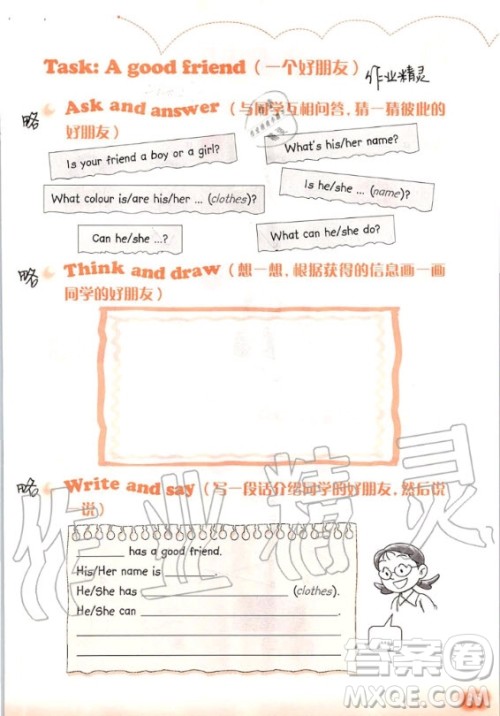 Task: A good friend（一个好朋友） 作业精灵
略 Ask and answer（与同学互相问答，猜一猜彼此的
好朋友）
Is your friend a boy or a girl?
What's his/her name?
What colour is/are his/her ... (clothes)?
Is he/she ... (name)?
Can he/she ...?
What can he/she do?
略 Think and draw（想一想，根据获得的信息画一画
同学的好朋友）
略 Write and say（写一段话介绍同学的好朋友，然后说
说）
______ has a good friend.
His/Her name is ______.
He/She has ______ (clothes).
He/She can ______
作业精灵
答案圈
MXQE.COM